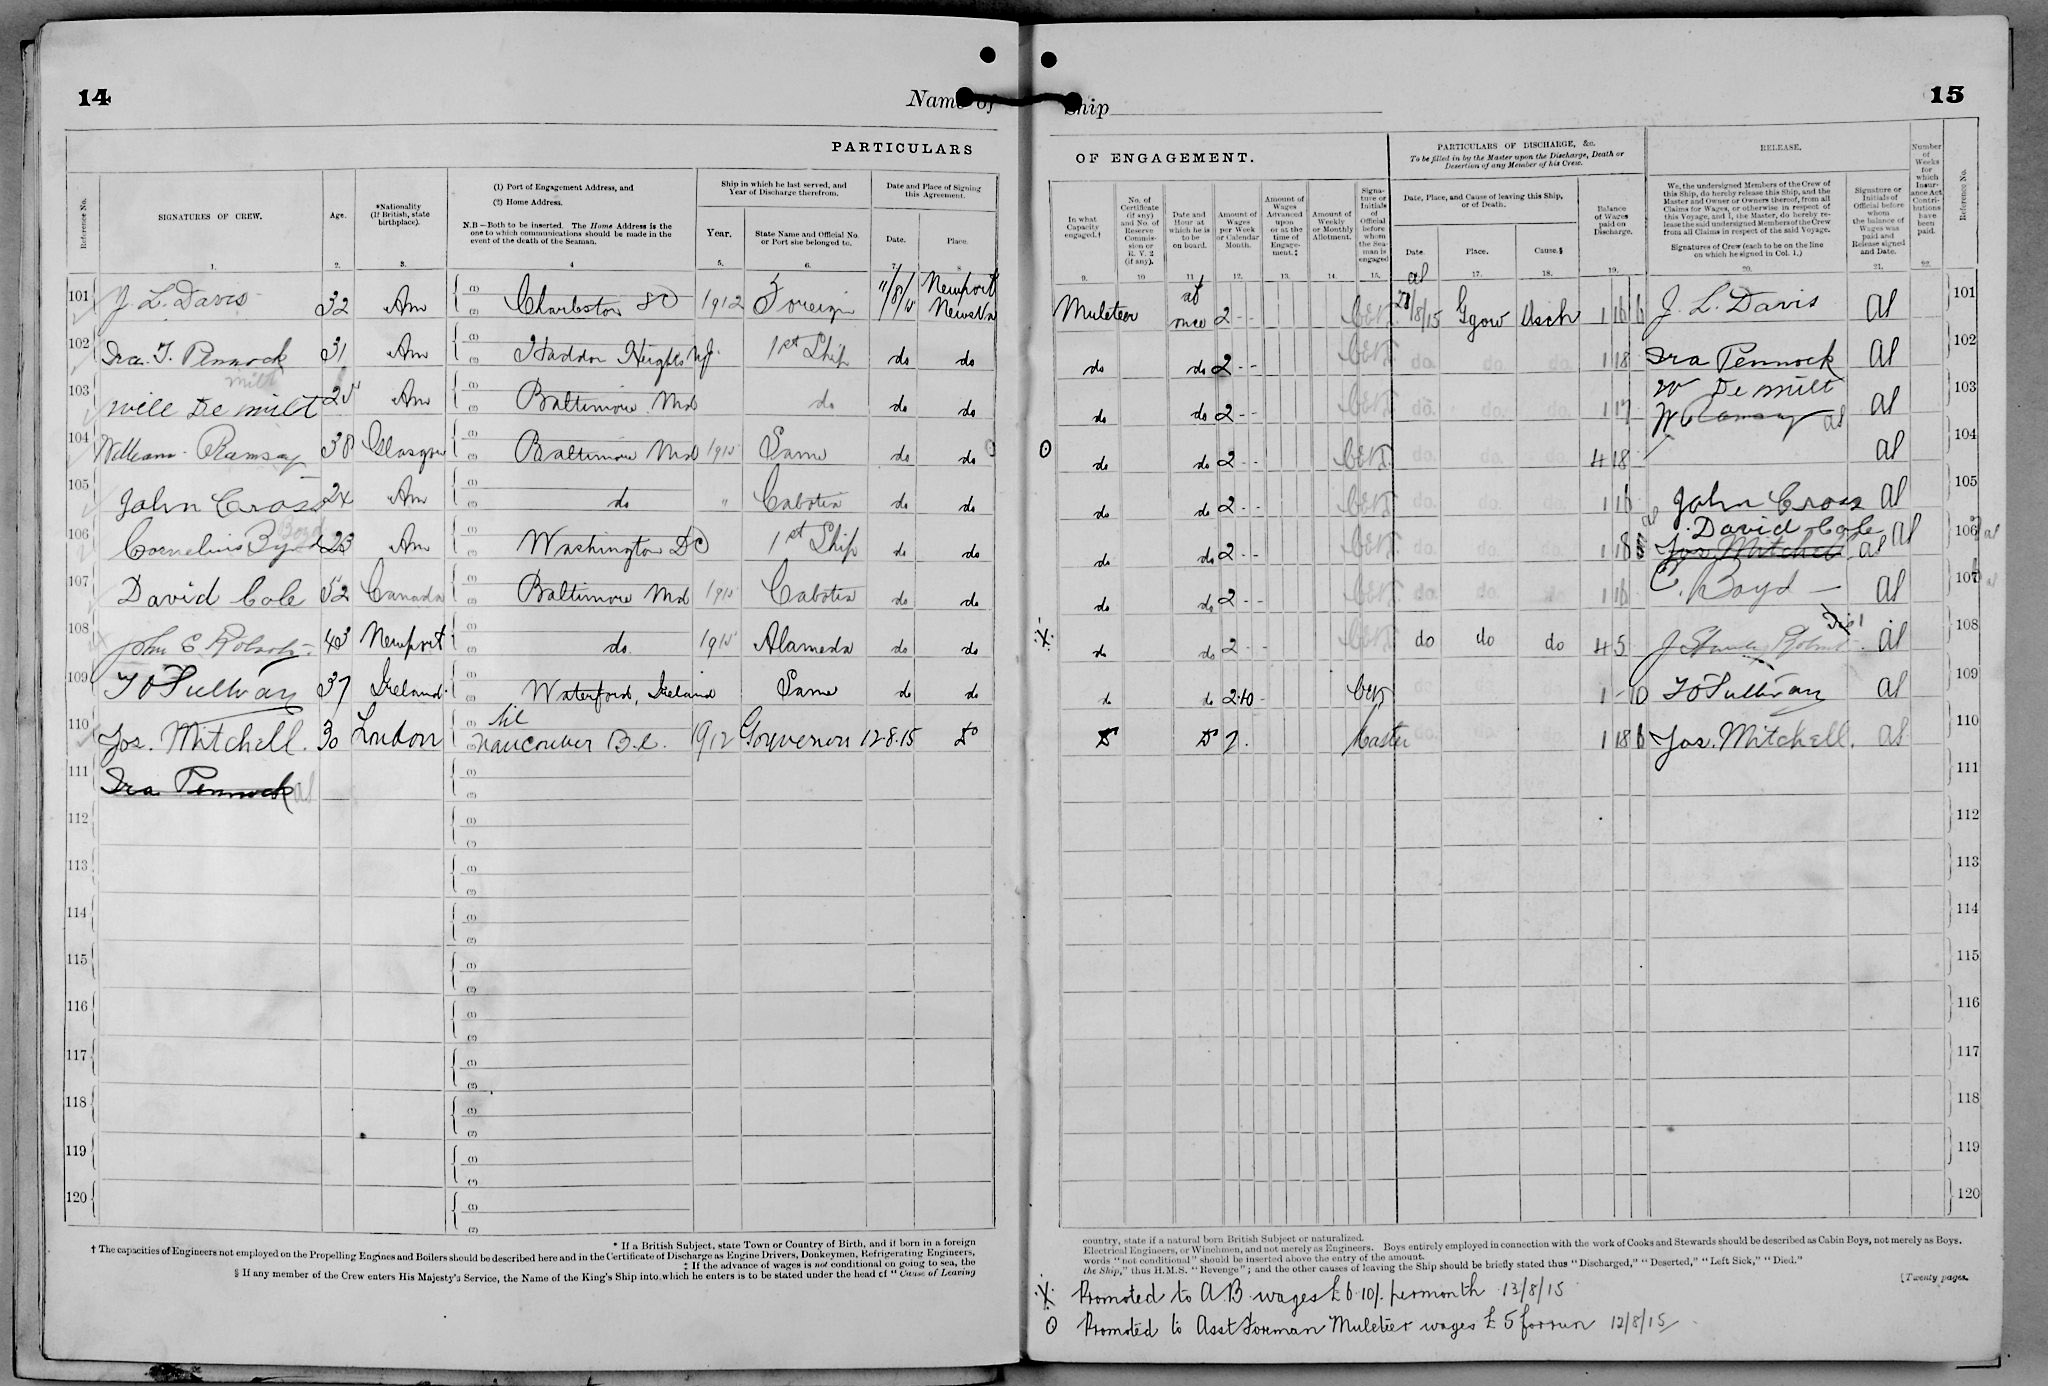 14
Name of
PARTICULARS
Reference No.
SIGNATURES OF CREW.
Age.
*Nationality (If British, state birthplace).
(1) Port of Engagement Address, and
(2) Home Address.
N.B—Both to be inserted. The Home Address is the one to which communications should be made in the event of the death of the Seaman.
Ship in which he last served, and Year of Discharge therefrom.
Year.
State Name and Official No. or Port she belonged to.
Date and Place of Signing this Agreement.
Date.
Place.
1. 2. 3. 4 5. 6. 7. 8
101 J. L. Davis 32 Am (1) (2) Charleston SC 1912 Foreign 11/8/15 Newport News Va
102 Ira. T. Pennock 31 Am (1) (2) Haddon Heights NJ. 1st Ship do do
milt
103 Will De milt 25 Am (1) (2) Baltimore Md do do do
104 William Ramsay 38 Glasgow (1) (2) Baltimore Md 1915 Same do do
105 John Cross 24 Am (1) (2) do " Cabotia do do
Boyd
106 Cornelius Byrd 23 Am (1) (2) Washington DC 1st Ship do do
107 David Cole 52 Canada (1) (2) Baltimore Md 1915 Cabotia do do
108 John E Roberts 43 Newport (1) (2) do 1915 Alameda do do
109 T O'Sullivan 37 Ireland (1) (2) Waterford, Ireland Same do do
110 Jos. Mitchell. 30 London (1) nil (2) Vancouver B.C. 1912 12.8.15 Do
111 Ira Pennock al (1) (2)
112 (1) (2)
113 (1) (2)
114 (1) (2)
115 (1) (2)
116 (1) (2)
117 (1) (2)
118 (1) (2)
119 (1) (2)
120 (1) (2)
* If a British Subject, state Town or Country of Birth, and if born in a foreign
† The capacities of Engineers not employed on the Propelling Engines and Boilers should be described here and in the Certificate of Discharge as Engine Drivers, Donkeymen, Refrigerating Engineers,
‡ If the advance of wages is not conditional on going to sea, the
§ If any member of the Crew enters His Majesty's Service, the Name of the King's Ship into which he enters is to be stated under the head of "Cause of Leaving
Ship
15
OF ENGAGEMENT.
PARTICULARS OF DISCHARGE, &c.
To be filled in by the Master upon the Discharge, Death or Desertion of any Member of his Crew.
RELEASE.
In what Capacity engaged.†
No. of Certificate (if any) and No. of Reserve Commission or R. V. 2 (if any).
Date and Hour at which he is to be on board.
Amount of Wages per Week or Calendar Month.
Amount of Wages Advanced upon or at the time of Engagement.‡
Amount of Weekly or Monthly Allotment.
Signature or Initials of Official before whom the Seaman is engaged
Date, Place, and Cause of leaving this Ship, or of Death.
Date.
Place.
Cause.§
Balance of Wages paid on Discharge.
We, the undersigned Members of the Crew of this Ship, do hereby release this Ship, and the Master and Owner or Owners thereof, from all Claims for Wages, or otherwise in respect of this Voyage, and I, the Master, do hereby release the said undersigned Members of the Crew from all Claims in respect of the said Voyage.
Signatures of Crew (each to be on the line on which he signed in Col. 1.)
Signature or Initials of Official before whom the balance of Wages was paid and Release signed and Date.
Number of Weeks for which Insurance Act Contributions have been paid.
Reference No.
9. 10 11 12. 13. 14. 15. 17. 18. 19. 20. 21. 22.
al
Muleteer at once 2 - - 28/8/15 Ggow Disch 1 16 6 J. L. Davis al 101
do do 2 - - do. do. do. 1 18 Ira Pennock al 102
do do 2 - - do. do. do. 1 17 W De milt al 103
W Ramsay al
O do do 2 - - do. do. do. 4 18 al 104
do do 2 - - do. do. do. 1 16 John Cross al 105
David Cole al
do do 2 - - do. do. do. 1 18 Jos. Mitchell al 106 al
do do 2 - - do. do. do. 1 16 C. Boyd al 107 al
X do do 2 - - do do do 4 5 al 108
do do 2.10 - 1 - 10 T O'Sullivan al 109
Do Do 2. Master do. do. do. 1 18 6 Jos. Mitchell. al 110
111
112
113
114
115
116
117
118
119
120
country, state if a natural born British Subject or naturalized.
Electrical Engineers, or Winchmen, and not merely as Engineers. Boys entirely employed in connection with the work of Cooks and Stewards should be described as Cabin Boys, not merely as Boys.
words "not conditional" should be inserted above the entry of the amount.
the Ship," thus H.M.S. "Revenge"; and the other causes of leaving the Ship should be briefly stated thus "Discharged," "Deserted," "Left Sick," "Died."
[Twenty pages.
X Promoted to AB wages £6.10/. per month 13/8/15
O Promoted to Asst Forman Muleteer wages £5 for run 12/8/15